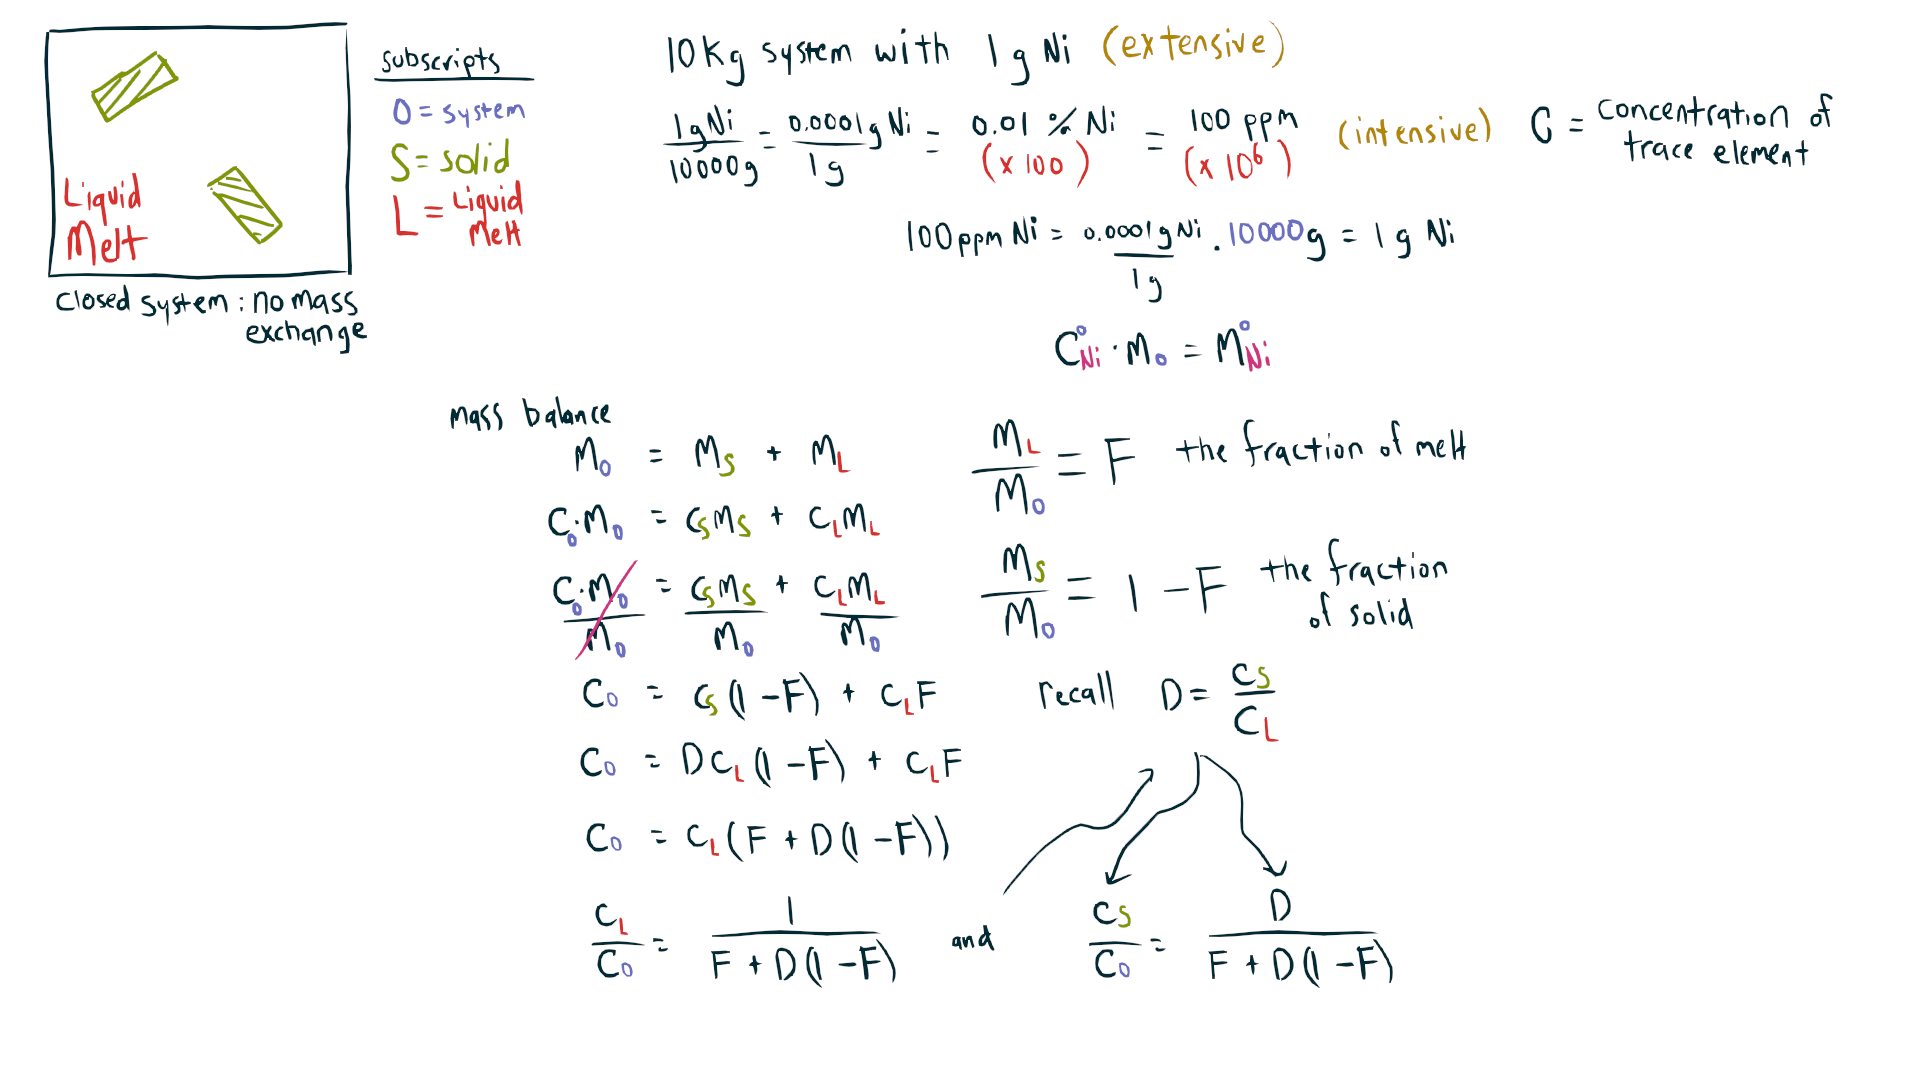 Liquid
Melt
Closed system : no mass
exchange
subscripts
0 = system
S = solid
L = Liquid
Melt
10Kg system with 1 g Ni (extensive)
1 g Ni / 10000g = 0.0001 g Ni / 1g = 0.01 % Ni (x 100) = 100 ppm (x 10⁶) (intensive)
C = concentration of
trace element
100 ppm Ni = 0.0001 g Ni / 1g · 10000g = 1 g Ni
C⁰_Ni · M₀ = M⁰_Ni
mass balance
M₀ = M_S + M_L
C₀·M₀ = C_S M_S + C_L M_L
C₀·M₀ / M₀ = C_S M_S / M₀ + C_L M_L / M₀
C₀ = C_S (1 - F) + C_L F
C₀ = D C_L (1 - F) + C_L F
C₀ = C_L (F + D (1 - F))
C_L / C₀ = 1 / F + D (1 - F) and C_S / C₀ = D / F + D (1 - F)
M_L / M₀ = F the fraction of melt
M_S / M₀ = 1 - F the fraction
of solid
recall D = C_S / C_L